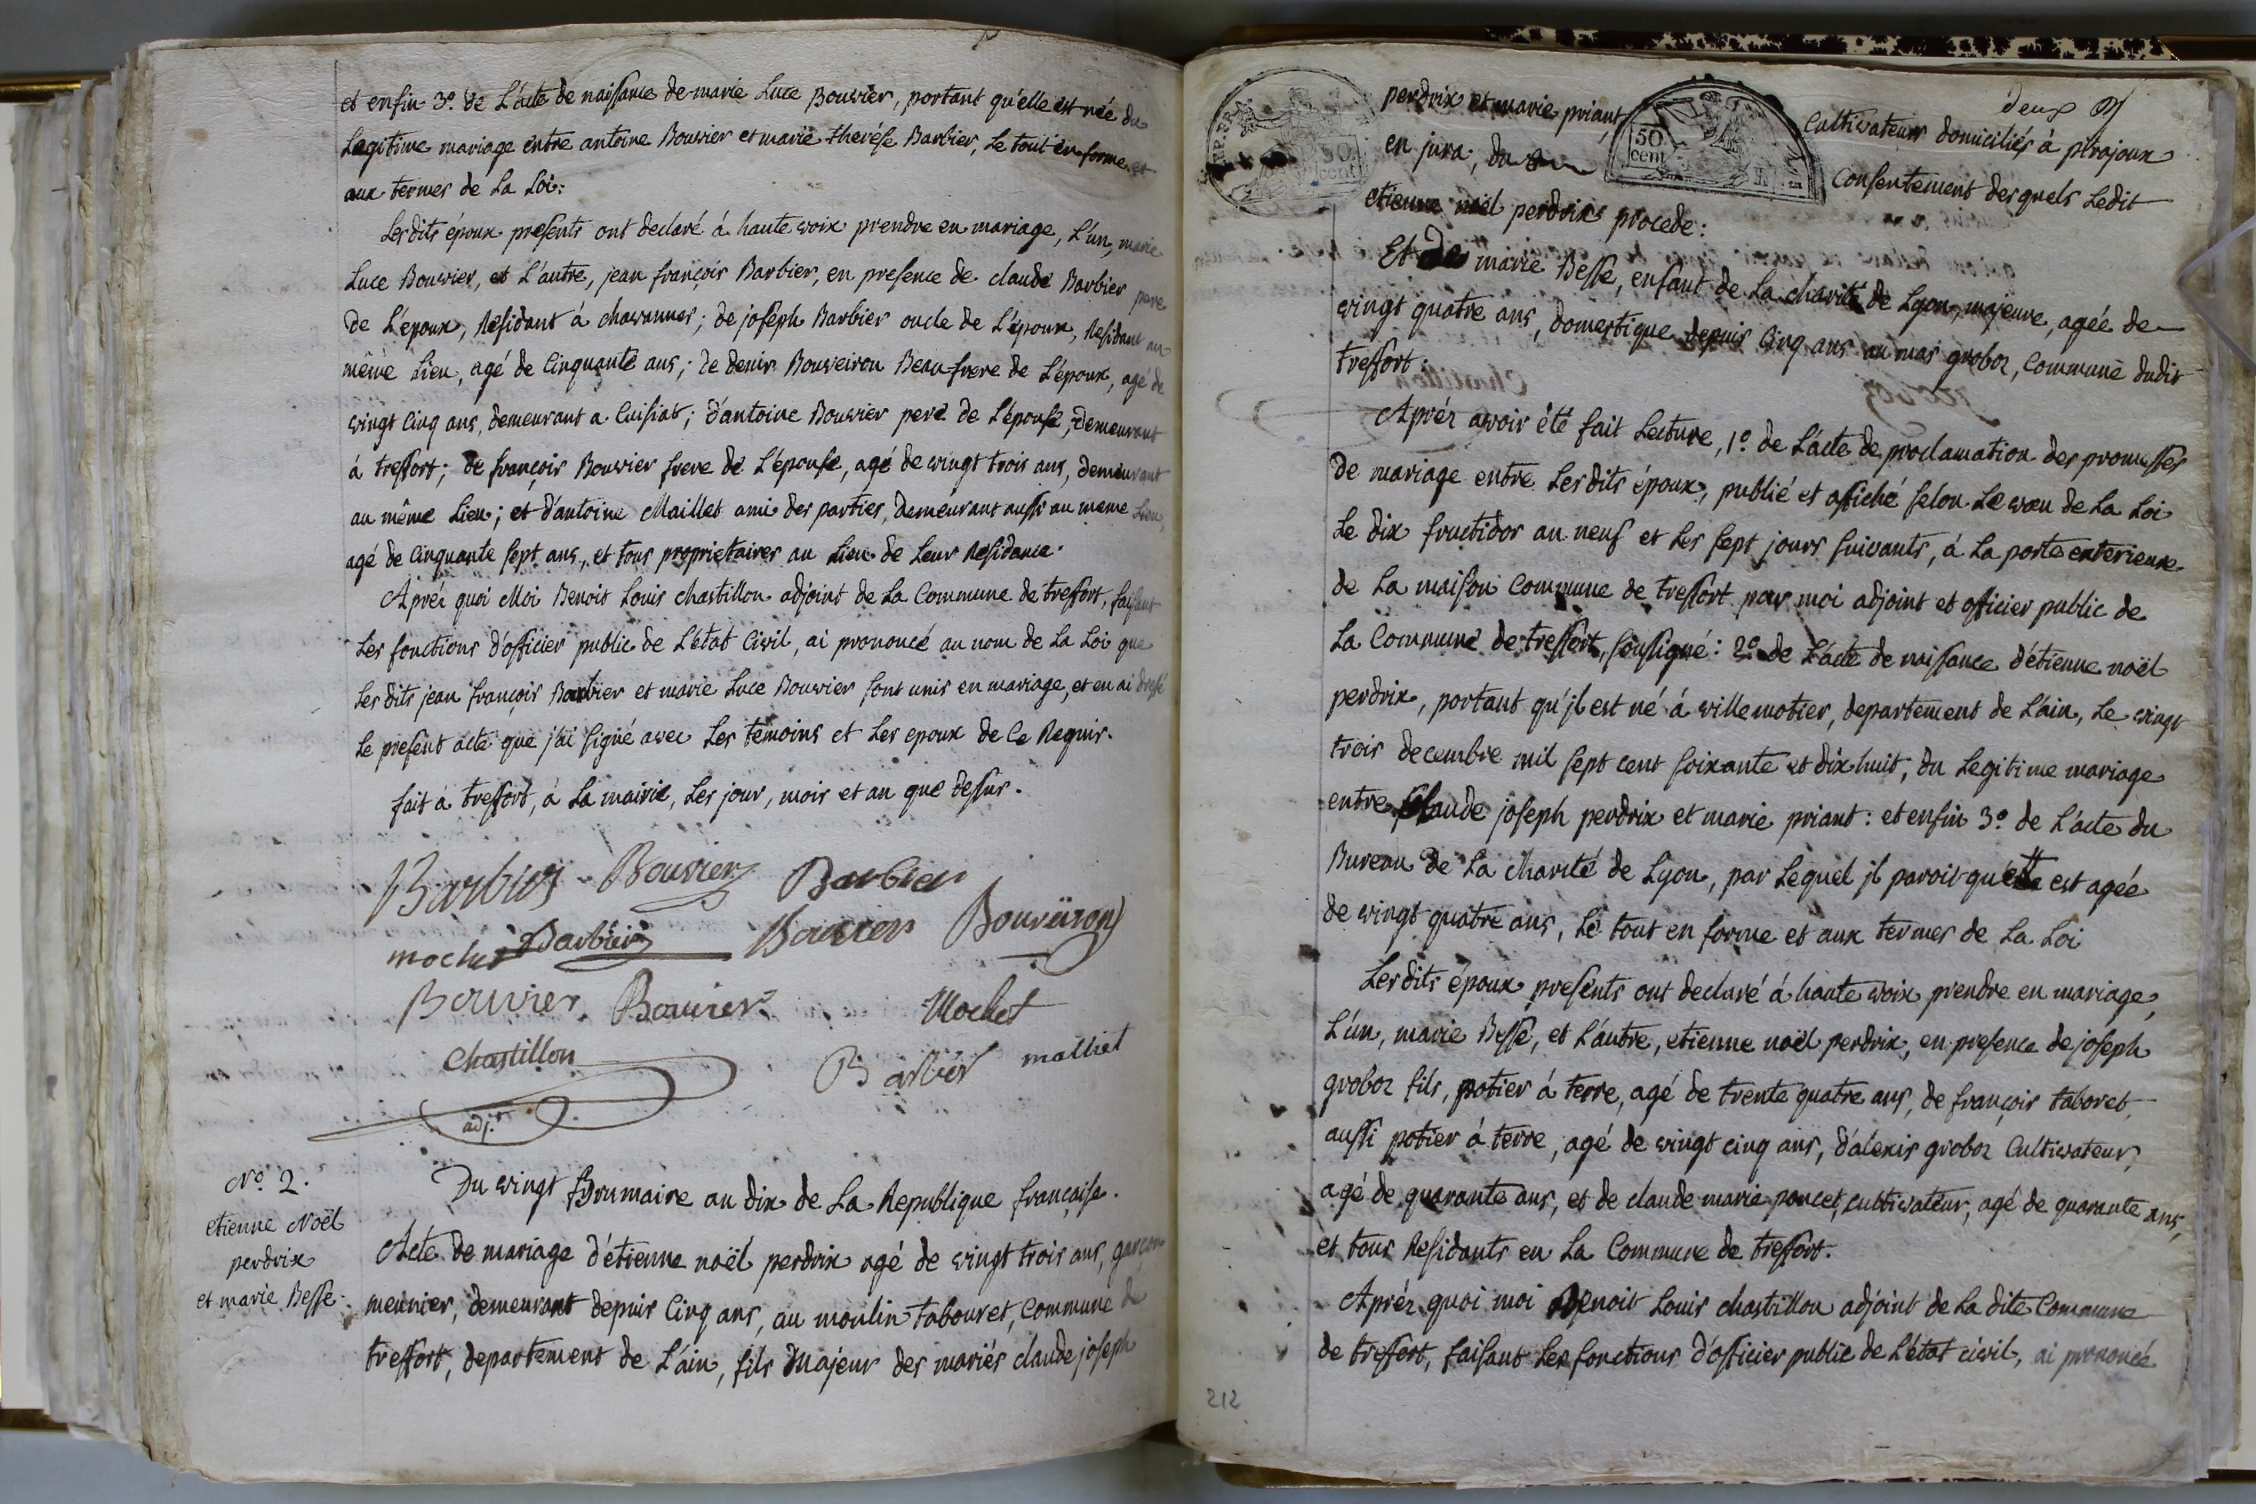 et enfin 3º. de L'acte de naissance de marie Luce Bouvier, portant qu'elle est née du
Legitime mariage entre antoine Bouvier et marie therése Barbier, Le tout en forme et
aux termes de La Loi:
Lesdits époux presents ont declaré à haute voix prendre en mariage, L'un, marie
Luce Bouvier, et L'autre, jean françois Barbier, en presence de claude Barbier pere
de L'epoux, Residant à chavannes; de joseph Barbier oncle de L'époux, Residant au
même Lieu, agé de Cinquante ans; de denis Bouveiron Beau-frere de L'époux, agé de
vingt Cinq ans, demeurant a Cuisiat; d'antoine Bouvier pere de L'épouse, demeurant
à treffort; de françois Bouvier frere de L'épouse, agé de vingt trois ans, demeurant
au même Lieu; et d'antoine Maillet ami des parties, demeurant aussi au meme Lieu,
agé de Cinquante sept ans, et tous proprietaires au Lieu de Leur Residance.
Aprés quoi Moi Benoit Louis chastillon adjoint de La Commune de treffort, faisant
Les fonctions d'officier public de L'état Civil, ai prononcé au nom de La Loi que
Lesdits jean françois Barbier et marie Luce Bouvier sont unis en mariage, et en ai dressé
Le present acte que j'ai signé avec Les temoins et Les epoux de Ce Requis.
fait à treffort, à La mairie, Les jour, mois et an que dessus.
Barbier Bouvier Barbier
mochet Barbier Bouvier Bouveiron
Bouvier Bouvier Mochet
Chastillon Barbier malliet
adj.t
Nº. 2.
etienne Noël
perdrix
et marie Besse.
Du vingt Brumaire an dix de La Republique française.
Acte de mariage d'étienne noël perdrix agé de vingt trois ans, garçon
meunier, demeurant depuis Cinq ans, au moulin tabouret, Commune de
treffort, departement de L'ain, fils Majeur des mariés claude joseph
deux
perdrix et marie priant, Cultivateurs domiciliés à pirajoux
en jura, du Consentement desquels Ledit
50 cent
etienne noël perdrix procede:
Et de marie Besse, enfant de La charité de Lyon, majeure, agée de
vingt quatre ans, domestique depuis Cinq ans au mas groboz, Commune dudit
treffort.
Aprés avoir été fait Lecture, 1º. de L'acte de proclamation des promesses
de mariage entre Lesdits époux, publié et affiché selon Le vœu de La Loi
Le dix fructidor an neuf et Les sept jours suivants, à La porte exterieure
de La maison Commune de treffort par moi adjoint et officier public de
La Commune de treffort, soussigné: 2º. de L'acte de naissance d'étienne noël
perdrix, portant qu'jl est né à villemotier, departement de L'ain, Le vingt
trois decembre mil sept cent soixante et dix huit, du Legitime mariage
entre Claude joseph perdrix et marie priant: et enfin 3º. de L'acte du
Bureau de La charité de Lyon, par Lequel jl paroit qu'elle est agée
de vingt quatre ans, Le tout en forme et aux termes de La Loi
Lesdits époux presents ont declaré à haute voix prendre en mariage,
L'un, marie Besse, et L'autre, etienne noël perdrix, en presence de joseph
groboz fils, potier à terre, agé de trente quatre ans, de françois taboret,
aussi potier à terre, agé de vingt cinq ans, d'alexis groboz Cultivateur,
agé de quarante ans, et de claude marie poncet, cultivateur, agé de quarante ans,
et tous Residants en La Commune de treffort.
Aprés quoi moi Benoit Louis chastillon adjoint de La dite Commune
de treffort, faisant Les fonctions d'officier public de L'état civil, ai prononcé
212